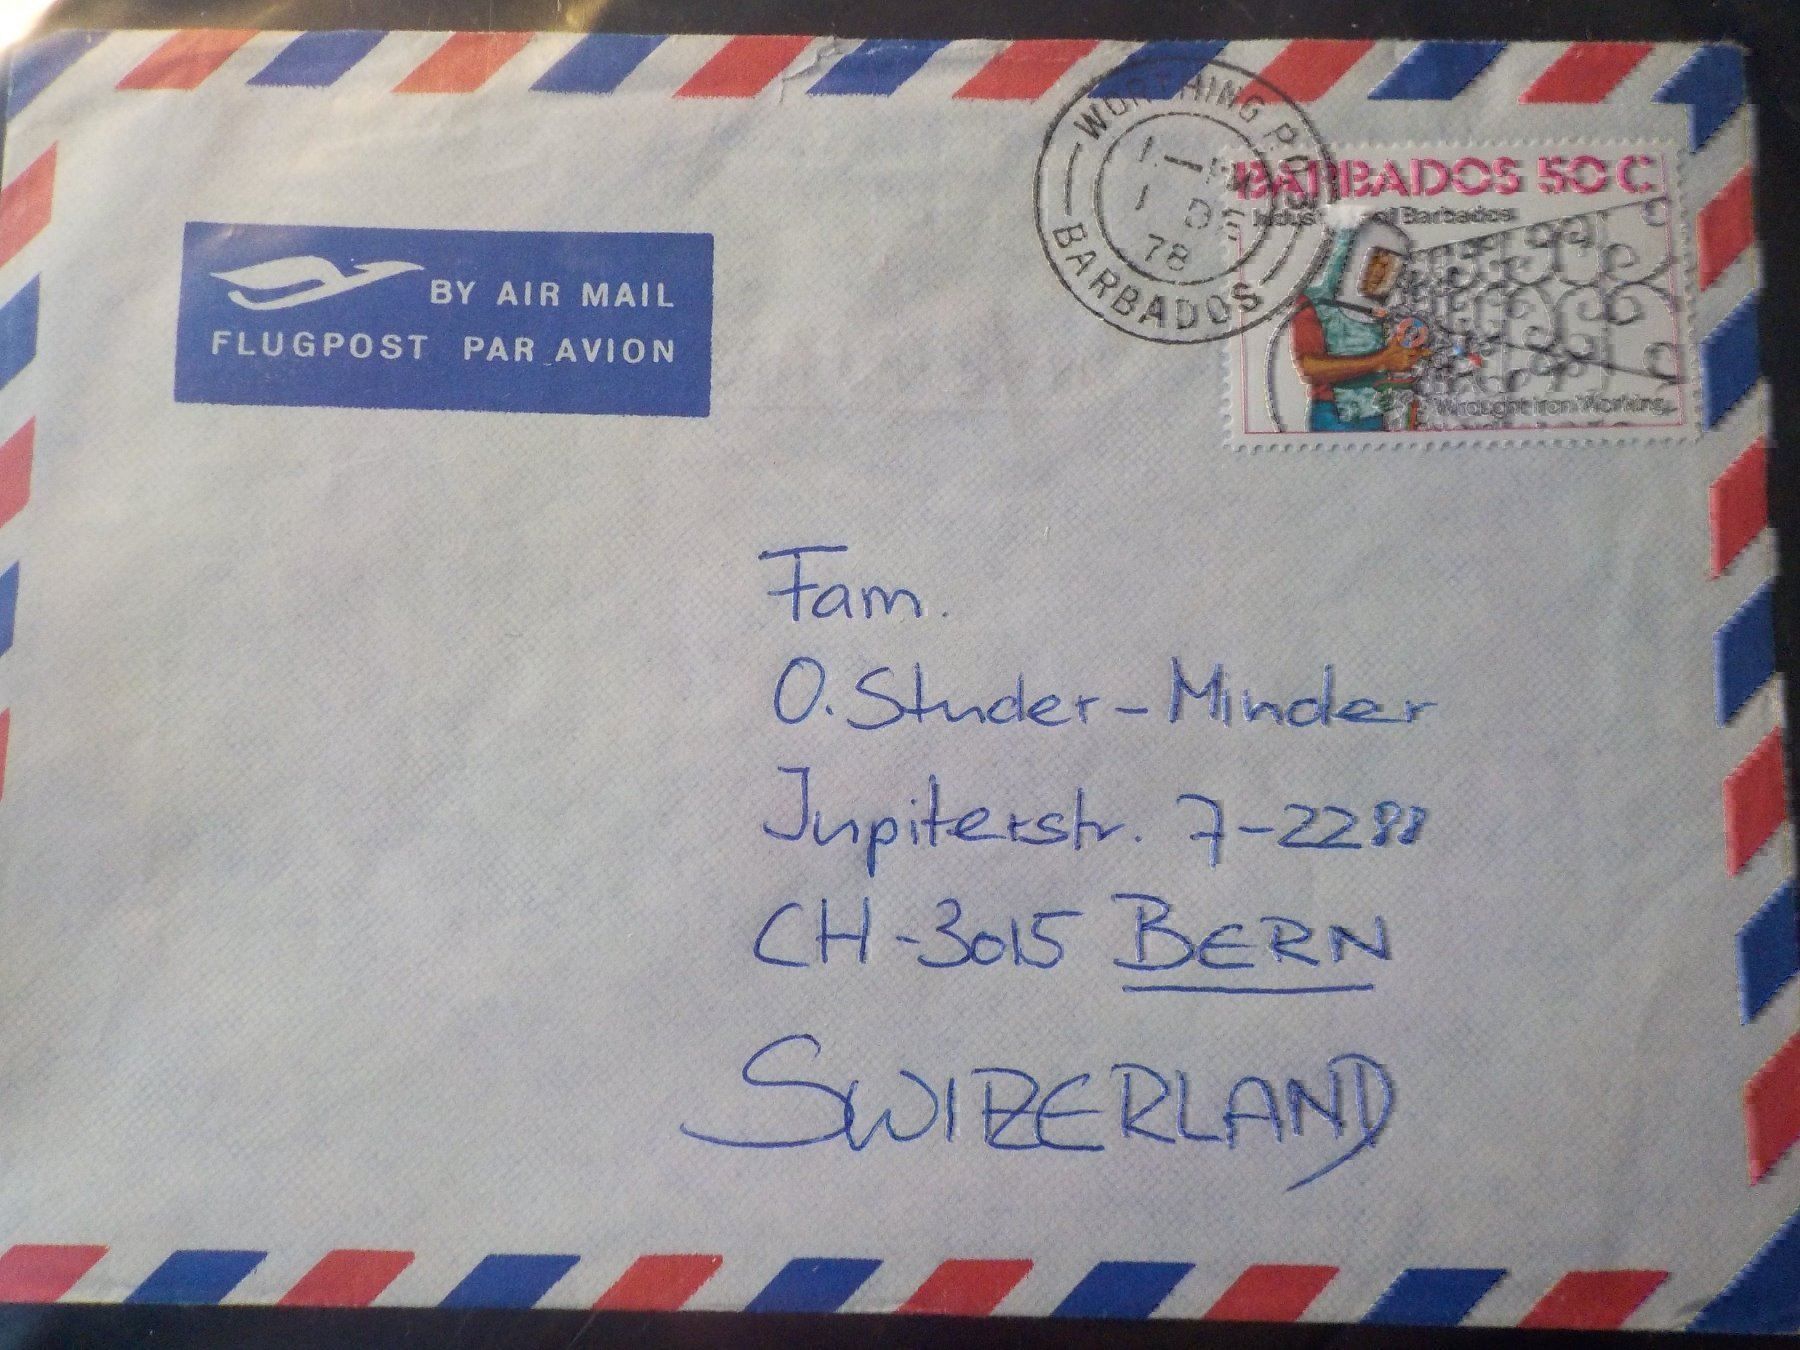 WORTHING P.O.
1 – PM
1 DE
78
BARBADOS
BARBADOS 50 C
of Barbados
Wrought Iron Working
BY AIR MAIL
FLUGPOST PAR AVION
Fam.
O. Studer-Minder
Jupiterstr. 7-2288
CH-3015 BERN
SWIZERLAND